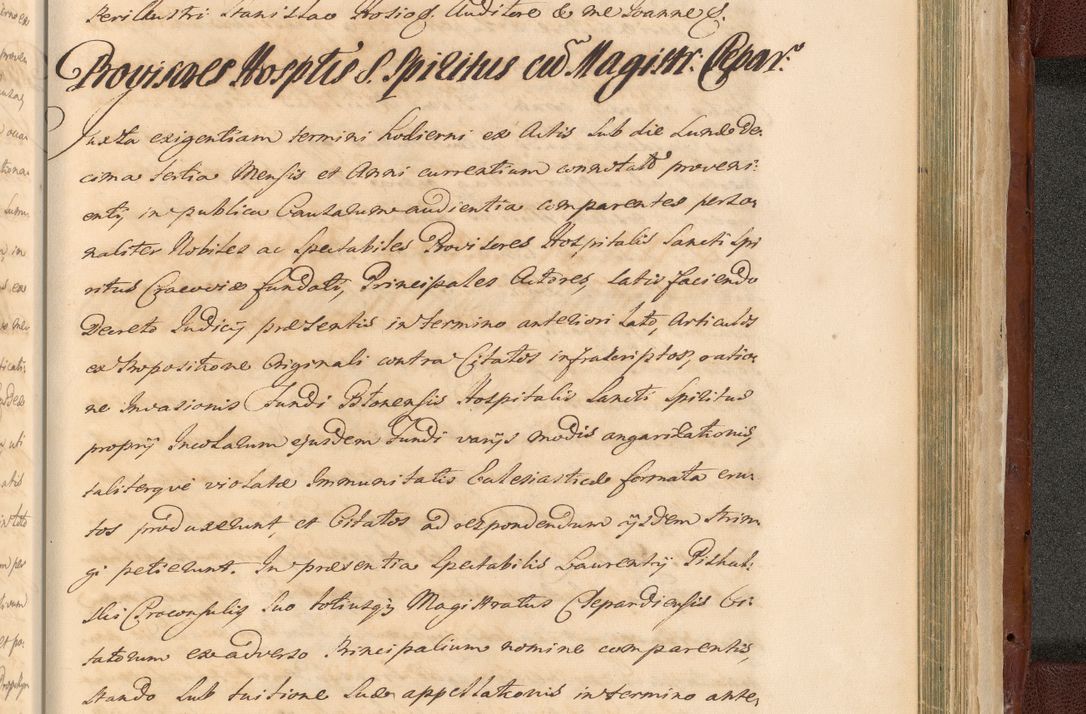 Perillustri Stanislao Hosio S. Auditore & me Joanne S.
Provisores Hosptis S. Spiritus cū Magistr. Clepar.
Juxta exigentiam termini hodierni ex Actis sub die Lunæ De-
cima tertia Mensis et Anni currentium connotato proveni-
entij in publica Causarum audientia comparentes perso-
naliter Nobiles ac Spectabiles Provisores Hospitalis Sancti Spi
ritus Cracoviæ fundati, Principales Actores, satis faciendo
Decreto Judicij præsentis in termino anteriori lato, Articulos
ex Propositione Originali contra Citatos infrascriptos, ratio-
ne Invasionis Fundi Blonensis Hospitalis Sancti Spiritus
proprij Incolarum ejusdem Fundi varijs modis angarizationis,
taliterque violatæ Immunitatis Ecclesiasticæ formata eru-
tos produxerunt, et Citatos ad respondendum ijsdem strin-
gi petierunt. In præsentia Spectabilis Laurentij Piskal-
ski Proconsulis suo totiusq; Magistratus Clepardiensis Ci-
tatorum ex adverso Principalium nomine comparentis,
stando sub tuitione suæ appellationis in termino ante-